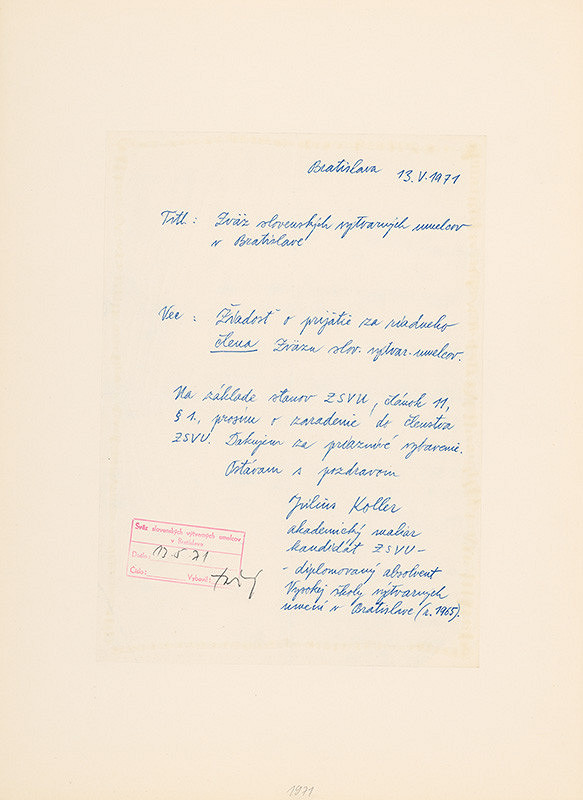 Bratislava 13.V.1971
Titl.: Zväz slovenských výtvarných umelcov
v Bratislave
Vec: Žiadosť o prijatie za riadneho
člena Zväzu slov. výtvar. umelcov.
Na základe stanov ZSVU, článok 11,
§ 1., prosím o zaradenie do členstva
ZSVU. Ďakujem za priaznivé vybavenie.
Ostávam s pozdravom
Július Koller
akademický maliar
kandidát ZSVU -
- diplomovaný absolvent
Vysokej školy výtvarných
umení v Bratislave (r. 1965).
Sväz slovenských výtvarných umelcov
v Bratislave
Došlo: 17.5.71
Číslo: Vybavil:
1971